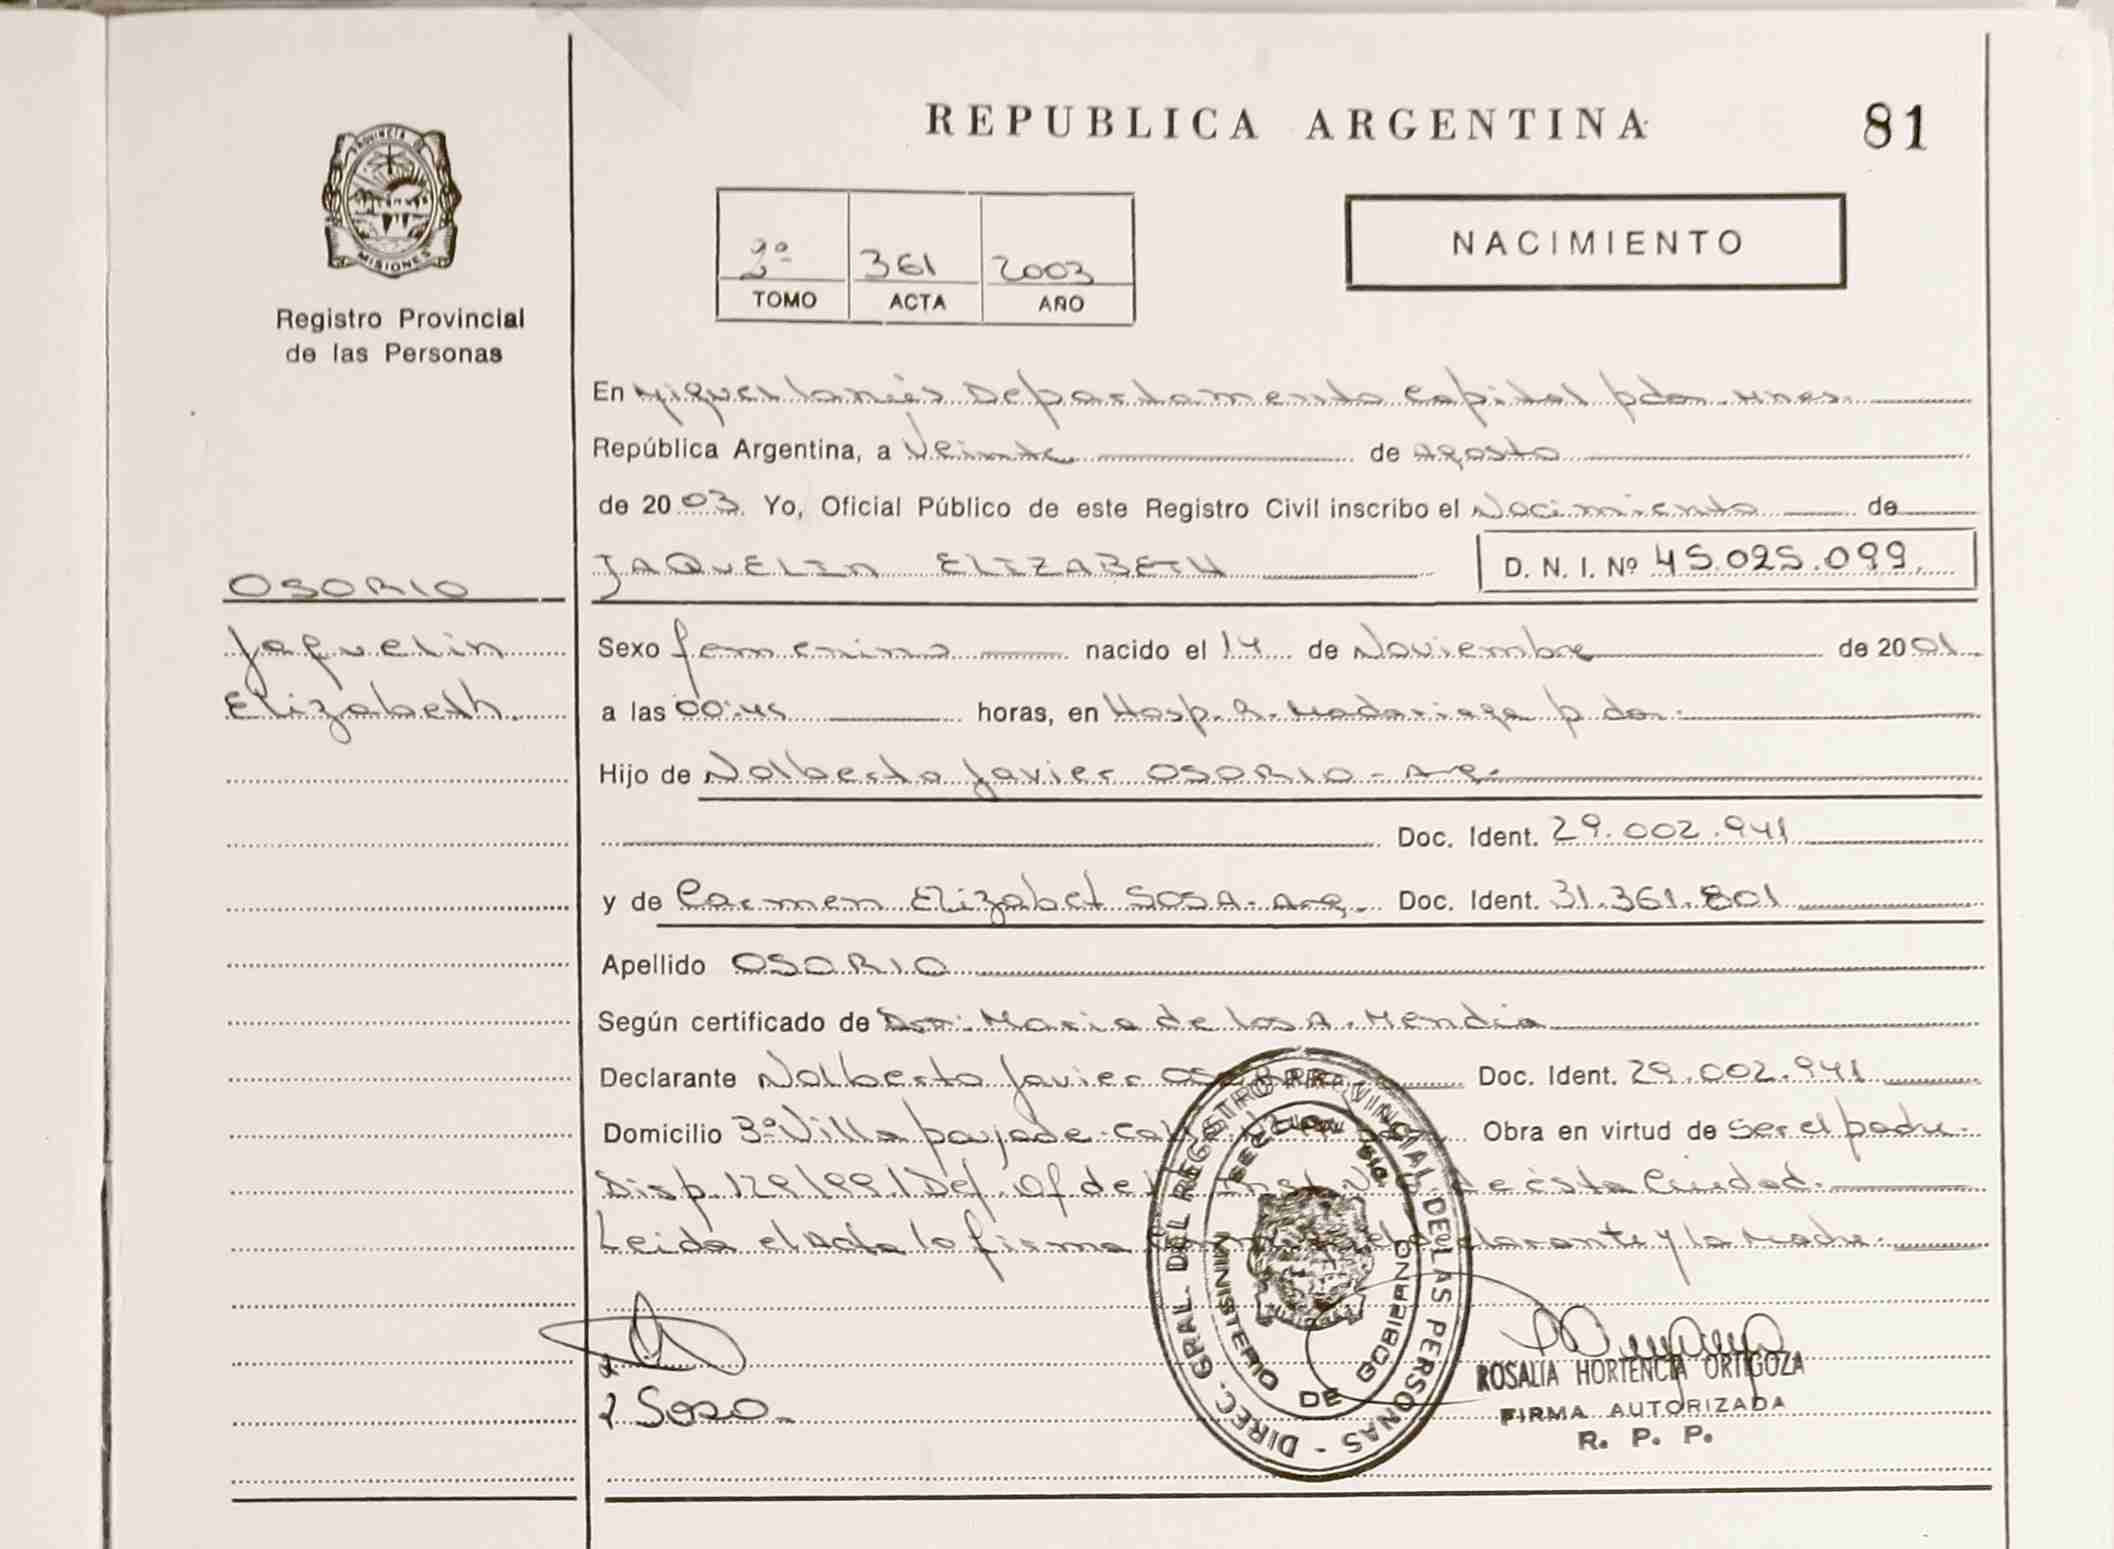 REPUBLICA ARGENTINA
81
PROVINCIA DE
MISIONES
Registro Provincial
de las Personas
2º 361 2003
TOMO ACTA AÑO
NACIMIENTO
En Miguel Lanús Departamento Capital pdas. Mnes.
República Argentina, a Veinte de Agosto
de 2003. Yo, Oficial Público de este Registro Civil inscribo el Nacimiento de
JAQUELIN ELIZABETH D. N. I. Nº 45.025.099.
OSORIO
Jaquelin
Elizabeth.
Sexo femenino nacido el 14 de Noviembre de 2001.
a las 00:45 horas, en Hosp. R. Madariaga pdas.
Hijo de Nolberto Javier OSORIO - Arg.
Doc. Ident. 29.002.941
y de Carmen Elizabet SOSA - Arg. Doc. Ident. 31.361.801
Apellido OSORIO
Según certificado de Dra. Maria de los A. Mendia
Declarante Nolberto Javier Doc. Ident. 29.002.941
Domicilio 3º Villa Obra en virtud de ser el padre.
Disp. 129/99/Def. Of de de ésta Ciudad.
Leida el Acta lo firma declarante y la Madre.
Sosa
DIREC. GRAL. DEL REGISTRO PROVINCIAL DE LAS PERSONAS -
MINISTERIO DE GOBIERNO
ROSALIA HORTENCIA ORTIGOZA
FIRMA AUTORIZADA
R. P. P.